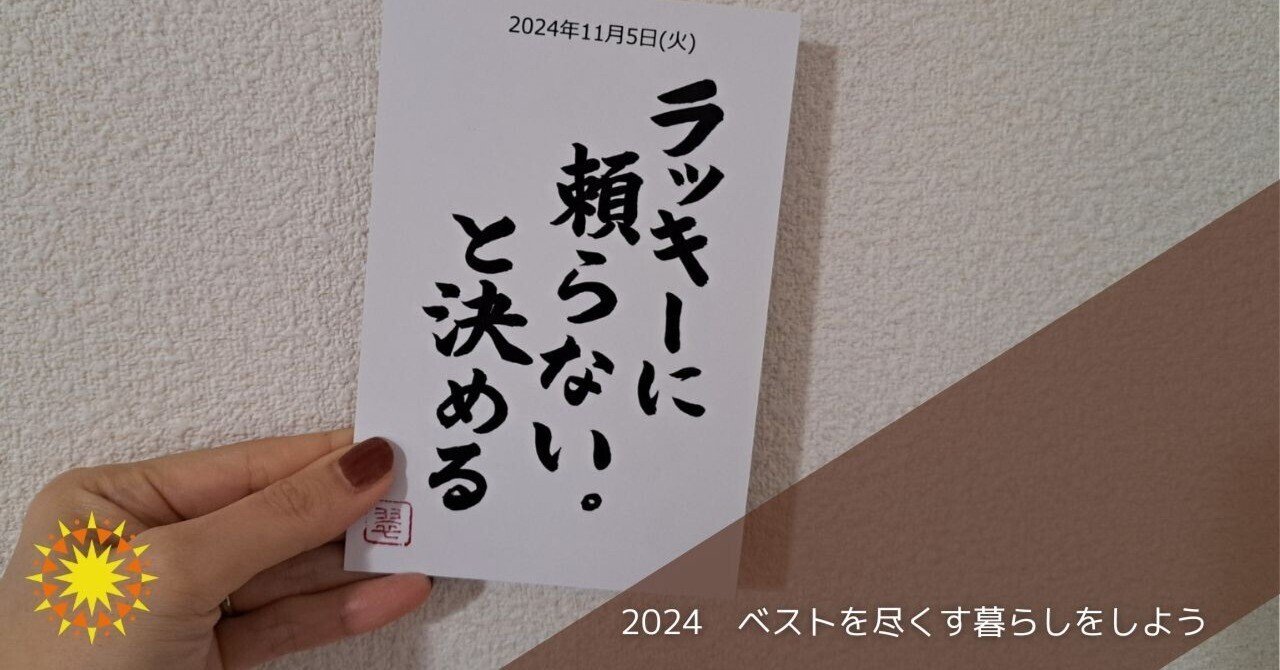 2024年11月5日(火)
ラッキーに
頼らない。
と決める
2024　ベストを尽くす暮らしをしよう